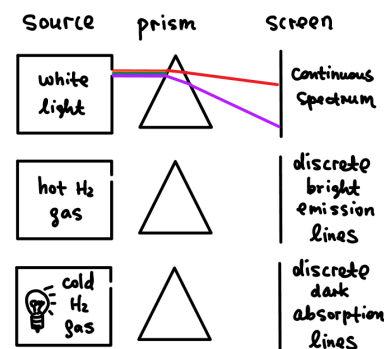 Source prism screen
white
light
Continuous
Spectrum
hot H₂
gas
discrete
bright
emission
lines
cold
H₂
gas
discrete
dark
absorption
lines